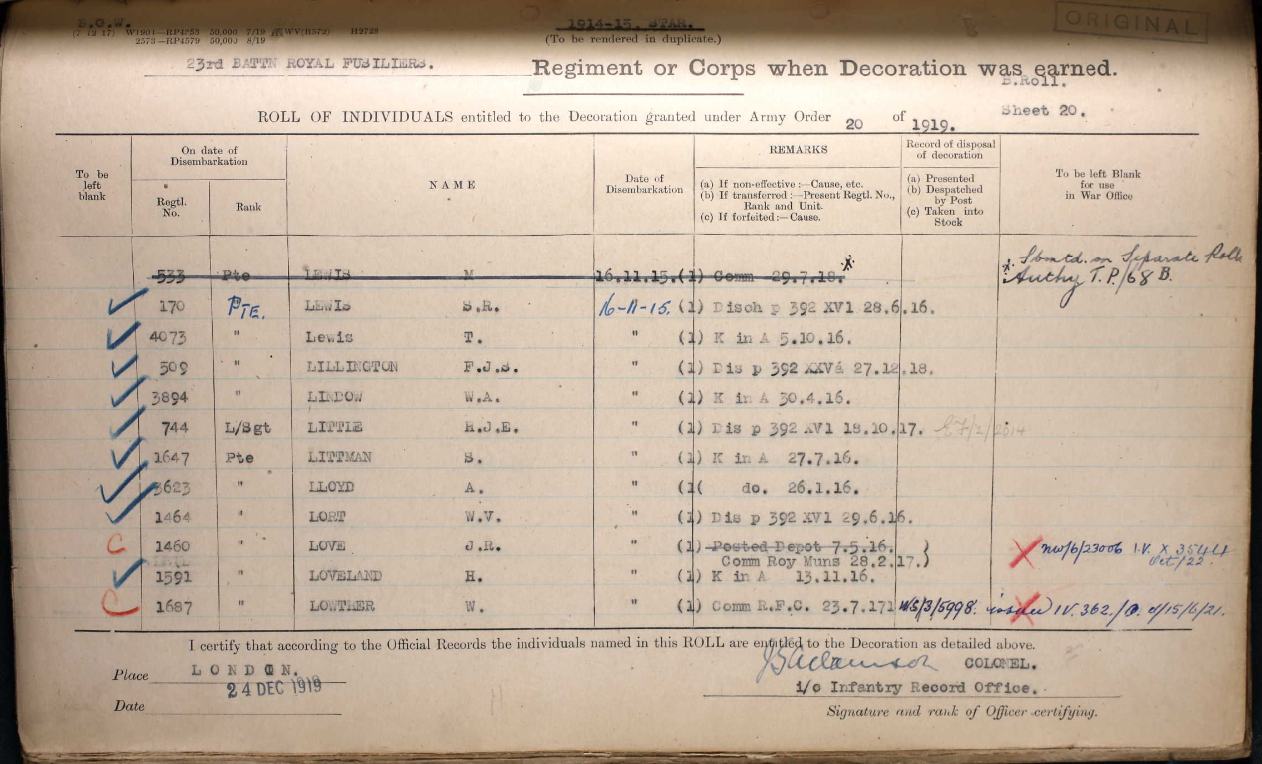 E.O.W. 1914-15. STAR. ORIGINAL
(7 12 17) W1901—RP4753 50,000 7/19 WV(H572) H2728 (To be rendered in duplicate.)
2573—RP4579 50,000 8/19
23rd BATTN ROYAL FUSILIERS. Regiment or Corps when Decoration was earned.
B.Roll.
ROLL OF INDIVIDUALS entitled to the Decoration granted under Army Order 20 of 1919. Sheet 20.
To be left blank
On date of Disembarkation
Regtl. No. Rank
NAME
Date of Disembarkation
REMARKS
(a) If non-effective :—Cause, etc.
(b) If transferred :—Present Regtl. No., Rank and Unit.
(c) If forfeited :—Cause.
Record of disposal of decoration
(a) Presented
(b) Despatched by Post
(c) Taken into Stock
To be left Blank for use in War Office
533 Pte LEWIS M 16.11.15. (1) Comm 29.7.18. Sbmtd. on Separate Rolls
Authy T.P./68 B.
170 PTE. LEWIS S.R. 16-11-15. (1) Disch p 392 XV1 28.6.16.
4073 " Lewis T. " (1) K in A 5.10.16.
509 " LILLINGTON F.J.S. " (1) Dis p 392 XXVá 27.12.18.
3894 " LINDOW W.A. " (1) K in A 30.4.16.
744 L/Sgt LITTLE H.J.E. " (1) Dis p 392 XV1 18.10.17.
1647 Pte LITTMAN S. " (1) K in A 27.7.16.
3623 " LLOYD A. " (1( do. 26.1.16.
1464 " LORT W.V. " (1) Dis p 392 XV1 29.6.16.
1460 " LOVE J.R. " (1) Posted Depot 7.5.16. ) X NW/6/23006 I.V. X 3544
Comm Roy Muns 28.2.17.) Oct/22.
1591 " LOVELAND H. " (1) K in A 13.11.16.
1687 " LOWTHER W. " (1) Comm R.F.C. 23.7.171 NS/3/5998. issued IV. 362./O. d/15/6/21.
I certify that according to the Official Records the individuals named in this ROLL are entitled to the Decoration as detailed above.
Place LONDON. COLONEL.
24 DEC 1919 i/c Infantry Record Office.
Date Signature and rank of Officer certifying.